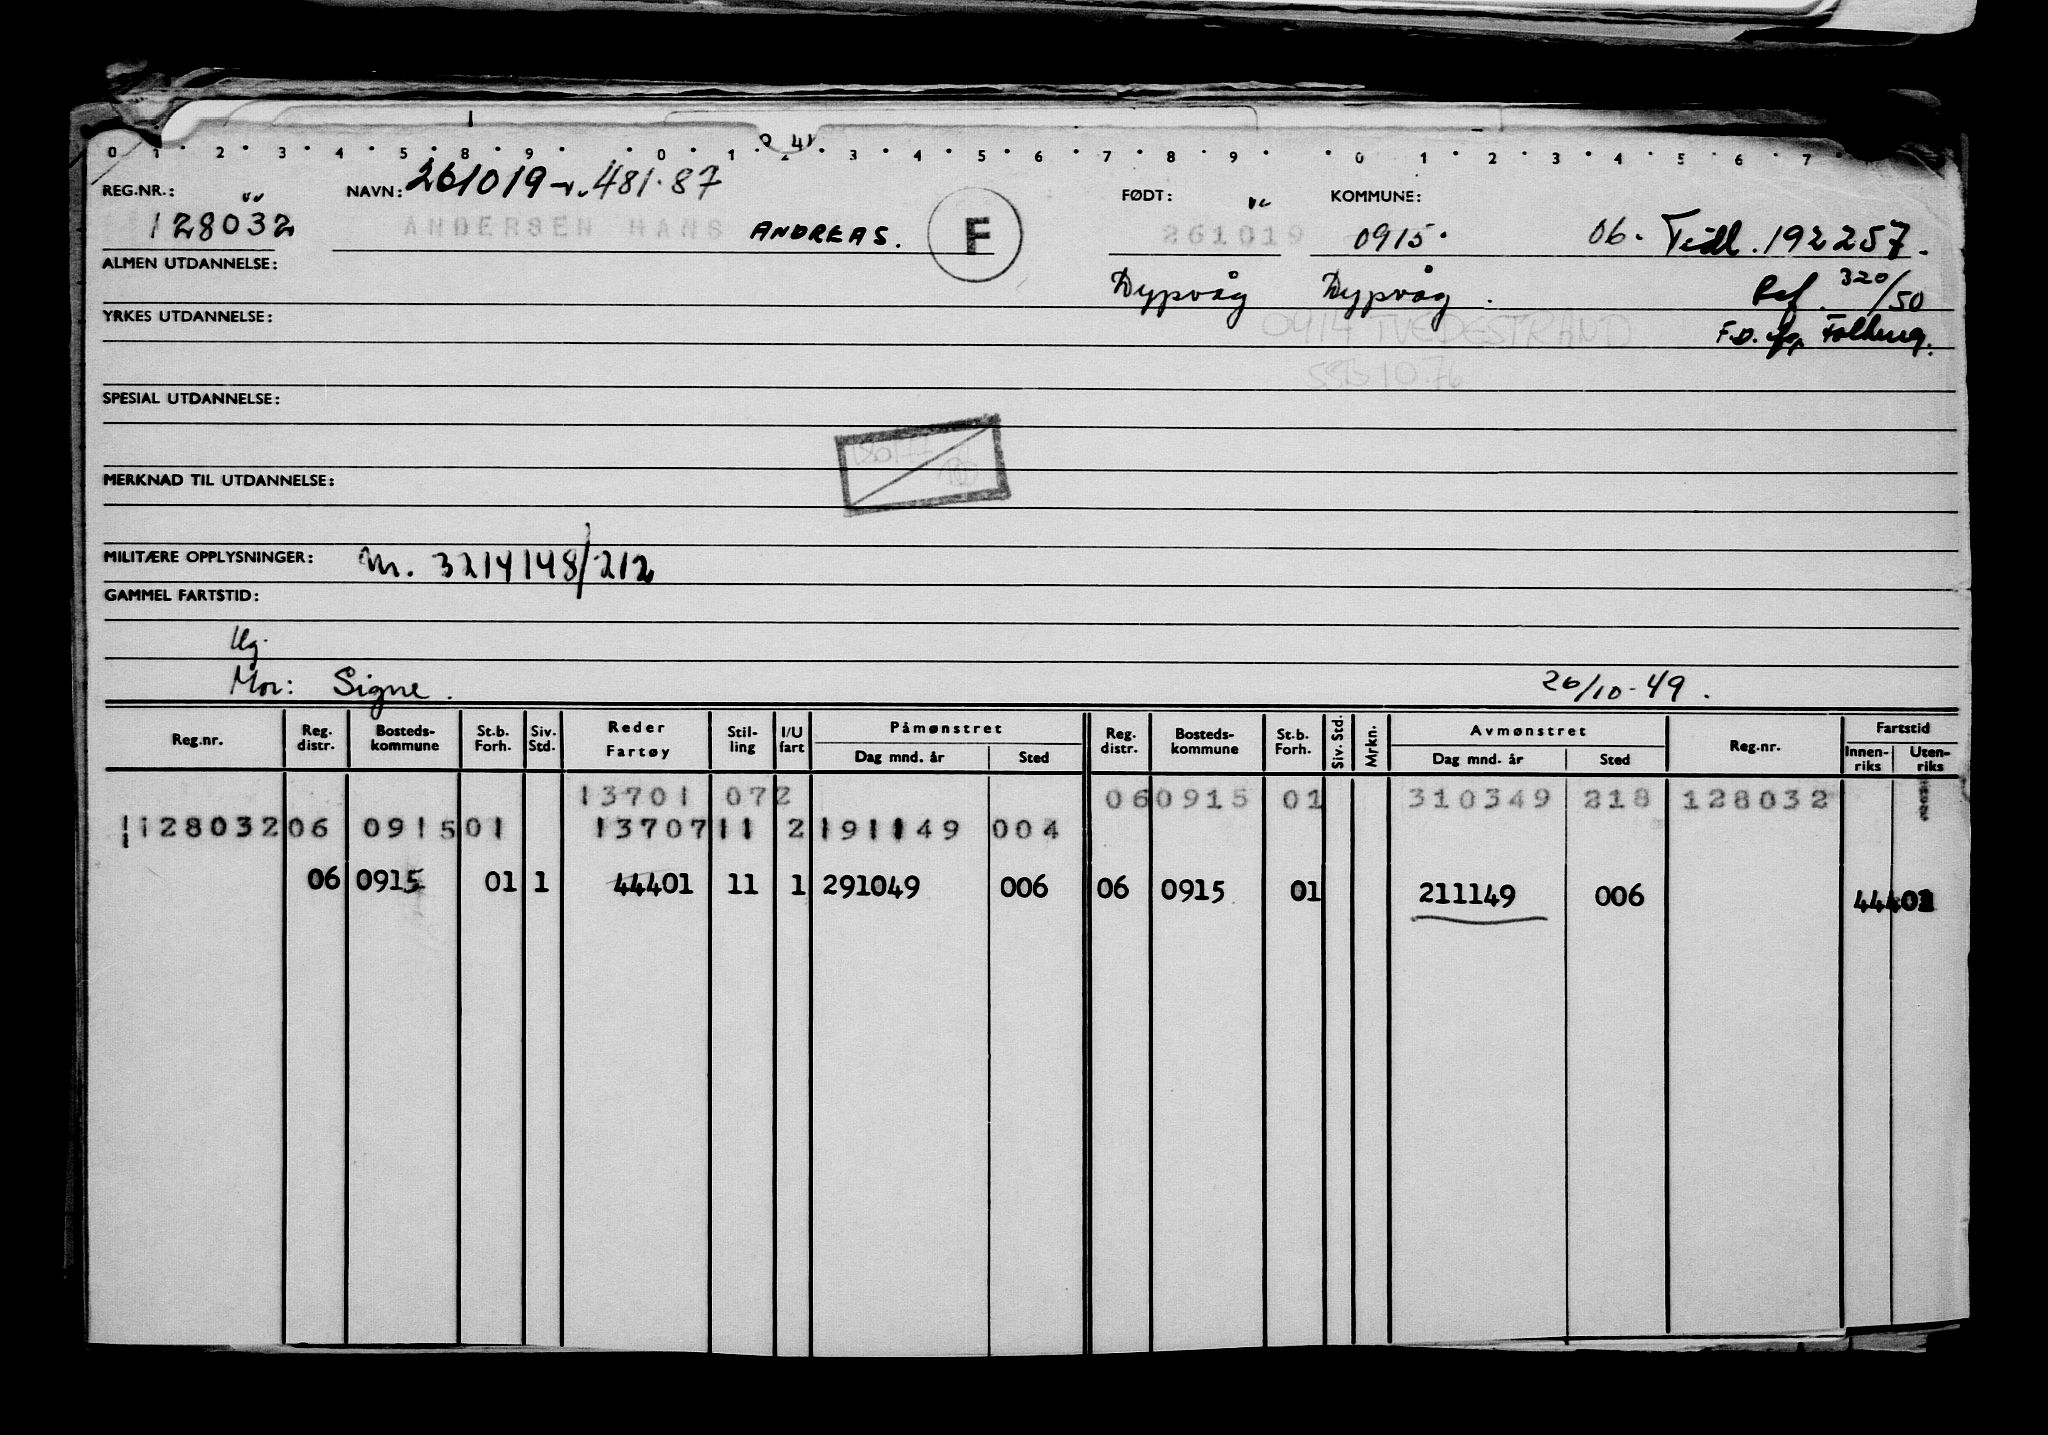 0 1 2 3 4 5 8 9 0 1 2 3 4 5 6 7 8 9 0 1 2 3 4 5 6 7
REG.NR.: NAVN: 261019 481.87 FØDT: KOMMUNE:
128032 ANDERSEN HANS ANDREAS. F 261019 0915. 06. Tidl. 192257.
ALMEN UTDANNELSE: Dypvåg Dypvåg. Ref. 320/50
YRKES UTDANNELSE: 0914 TVEDESTRAND F.D.
SSB 10.76
SPESIAL UTDANNELSE:
MERKNAD TIL UTDANNELSE:
MILITÆRE OPPLYSNINGER: Nr. 3214148/212
GAMMEL FARTSTID:
Ug.
Mor: Signe. 26/10-49.
Reg.nr. Reg. distr. Bosteds-kommune St.b. Forh. Siv. Std. Reder Fartøy Stil-ling I/U fart Påmønstret Dag mnd. år Sted Reg. distr. Bosteds-kommune St.b. Forh. Siv. Std. Mrkn. Avmønstret Dag mnd. år Sted Reg.nr. Fartstid Innen-riks Uten-riks
13701 072 06 0915 01 310349 218 128032
1128032 06 0915 01 13707 11 2 191149 004
06 0915 01 1 44401 11 1 291049 006 06 0915 01 211149 006